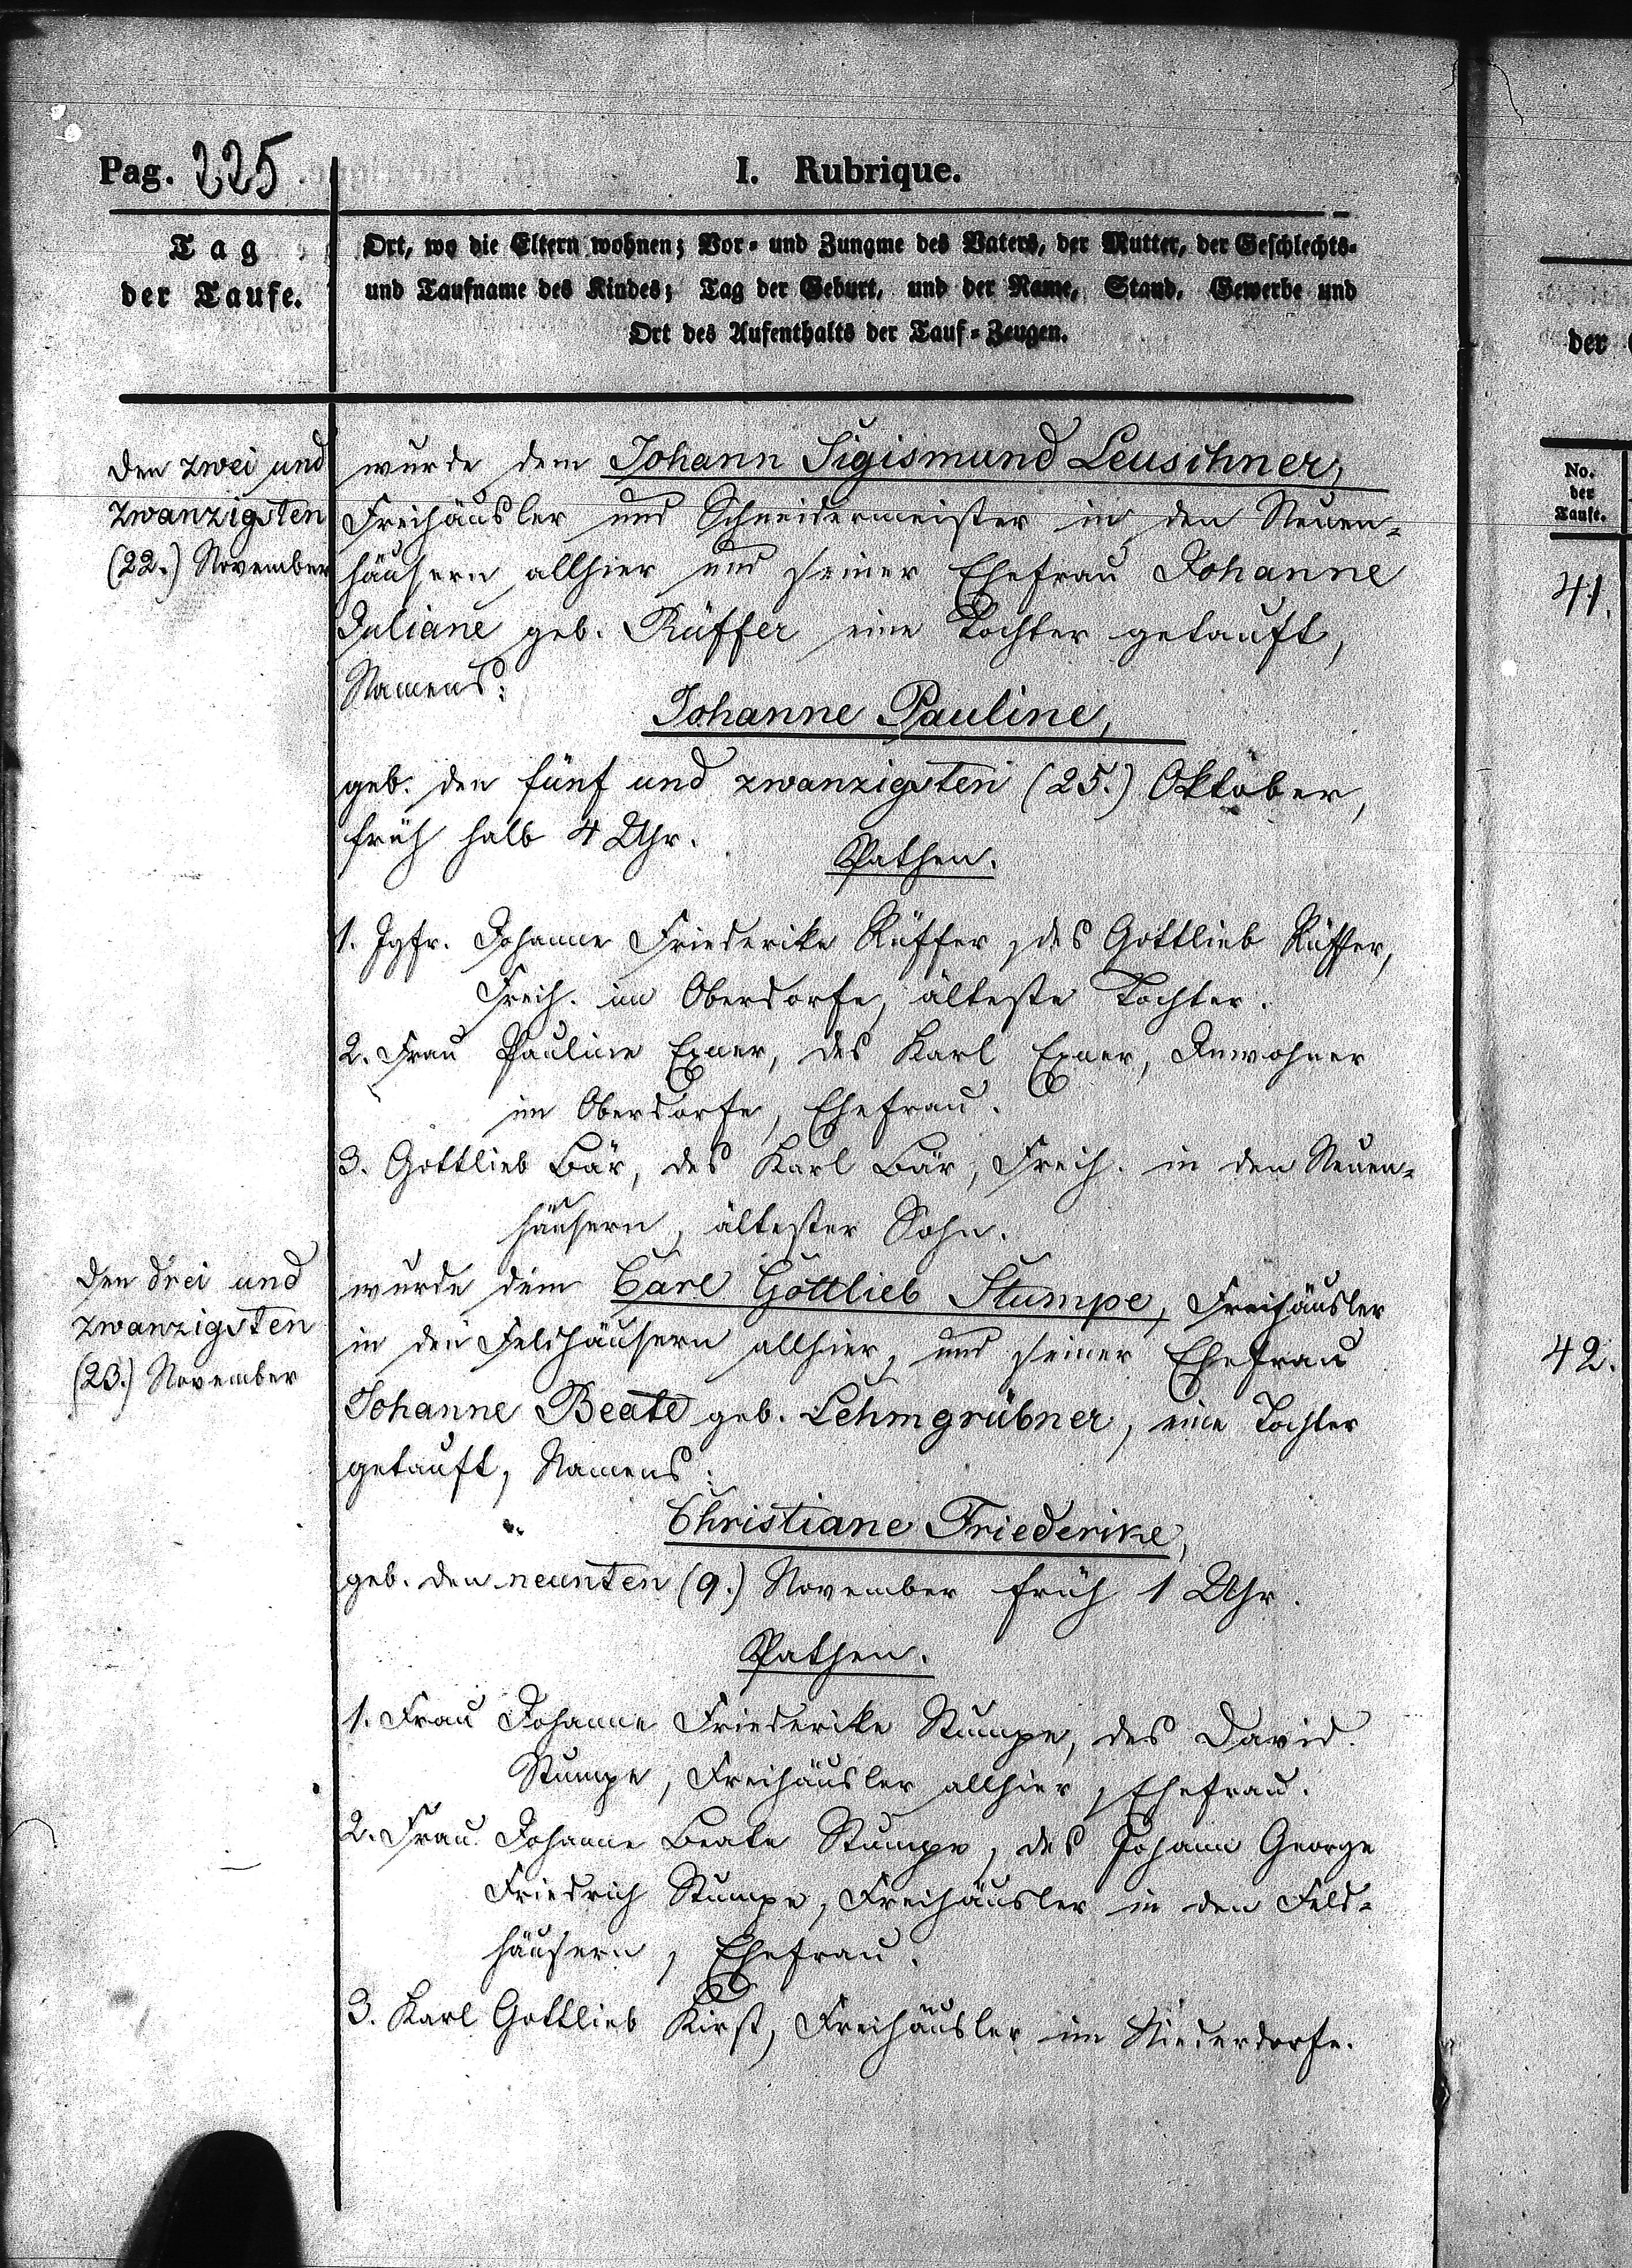 Pag. 225
I. Rubrique.
Tag
der Taufe.
Ort, wo die Eltern wohnen; Vor- und Zuname des Vaters, der Mutter, der Geschlechts-
und Taufname des Kindes; Tag der Geburt, und der Name, Stand, Gewerbe und
Ort des Aufenthalts der Tauf-Zeugen.
den zwei und
zwanzigsten
(22.) November
wurde dem Johann Sigismund Leuschner,
Freihäusler und Schneidermeister in den Neuen-
häusern allhier und seiner Ehefrau Johanne
Juliane geb. Rüffer eine Tochter getauft,
Namens:
Johanne Pauline,
geb. den fünf und zwanzigsten (25.) Oktober,
früh halb 4 Uhr.
Pathen.
1. Jgfr. Johanne Friederike Rüffer, des Gottlieb Rüffer,
Freih. im Oberdorfe, älteste Tochter.
2. Frau Pauline Exner, des Karl Exner, Inwohner
im Oberdorfe, Ehefrau.
3. Gottlieb Bär, des Karl Bär, Freih. in den Neuen-
häusern, ältester Sohn.
den drei und
zwanzigsten
(23.) November
wurde dem Carl Gottlieb Stumpe, Freihäusler
in den Feldhäusern allhier, und seiner Ehefrau
Johanne Beate geb. Lehmgrübner, eine Tochter
getauft, Namens:
Christiane Friederike,
geb. den neunten (9.) November früh 1 Uhr.
Pathen.
1. Frau Johanne Friederike Stumpe, des David
Stumpe, Freihäusler allhier, Ehefrau.
2. Frau Johanne Beate Stumpe, des Johann George
Friedrich Stumpe, Freihäusler in den Feld-
häusern, Ehefrau.
3. Karl Gottlieb Kirst, Freihäusler im Niederdorfe.
der
No.
der
Taufe.
41.
42.